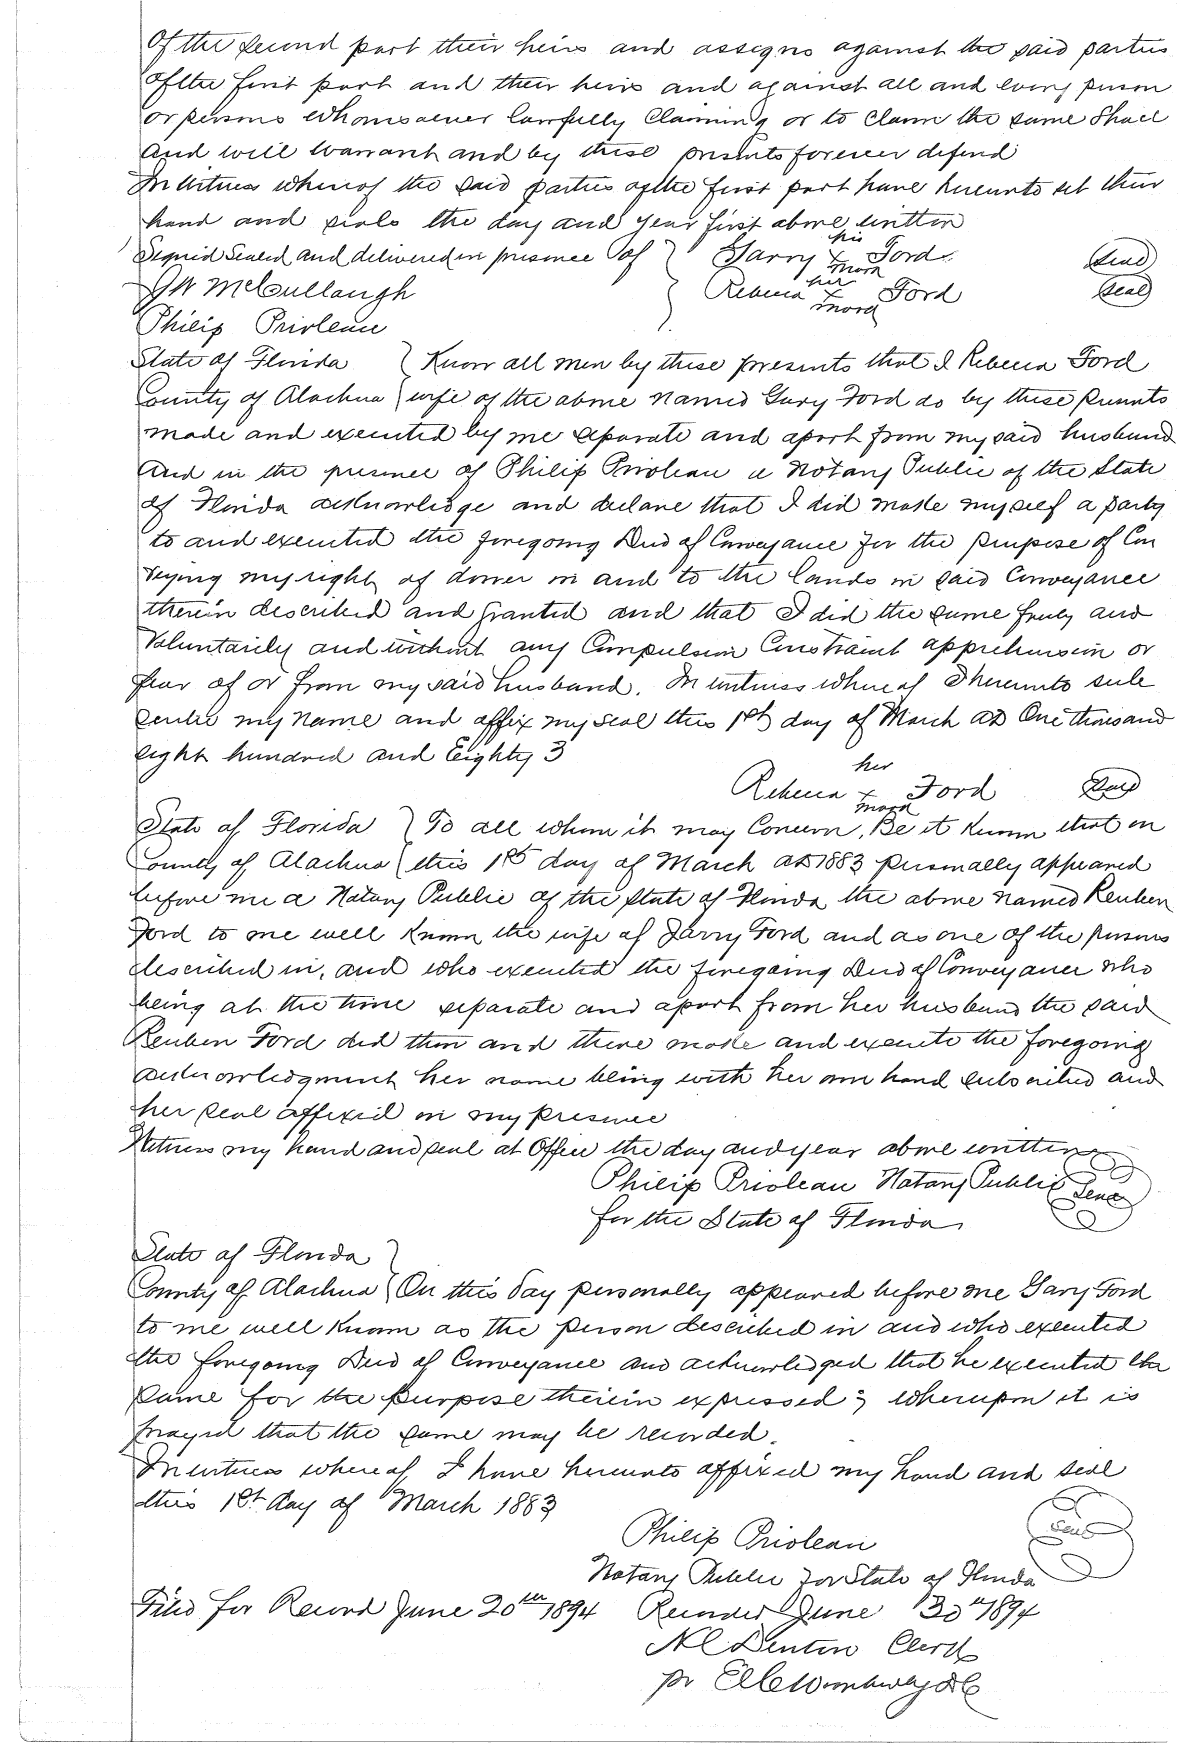 Of the second part their heirs and assigns against the said parties
of the first part and their heirs and against all and every person
or persons whomsoever lawfully claiming or to claim the same Shall
And will warrant and by these presents forever defend
In Witness whereof the said parties of the first part have hereunto set their
hand and seals the day and year first above written
Signed Sealed and delivered in presence of } Garry his x mark Ford (Seal)
J W McCullaugh } Rebecca her x mark Ford (Seal)
Philip Prioleau
State of Florida } Know all men by these presents that I Rebecca Ford
County of Alachua } wife of the above named Gary Ford do by these presents
made and executed by me separate and apart from my said husband
And in the presence of Philip Prioleau a Notary Public of the State
of Florida acknowledge and declare that I did make myself a party
to and executed the foregoing Deed of Conveyance for the purpose of Con
veying my right of dower in and to the lands in said Conveyance
therein described and granted and that I did the same freely and
Voluntarily and without any Compulsion Constraint apprehension or
fear of or from my said husband. In witness whereof I hereunto sub
scribe my name and affix my seal this 1st day of March AD One thousand
eight hundred and Eighty 3
Rebecca her x mark Ford (Seal)
State of Florida } To all whom it may Concern, Be it Known that on
County of Alachua } this 1st day of March AD 1883 personally appeared
before me a Notary Public of the State of Florida the above named Reuben
Ford to me well Known the wife of Garry Ford and as one of the persons
described in, and who executed the foregoing Deed of Conveyance who
being at the time separate and apart from her husband the said
Reuben Ford did then and there make and execute the foregoing
acknowledgment her name being with her own hand subscribed and
her seal affixed in my presence
Witness my hand and seal at Office the day and year above written
Philip Prioleau Notary Public (Seal)
for the State of Florida
State of Florida }
County of Alachua } On this day personally appeared before me Gary Ford
to me well Known as the person described in and who executed
the foregoing Deed of Conveyance and acknowledged that he executed the
same for the purpose therein expressed; whereupon it is
prayed that the same may be recorded.
In witness whereof I have hereunto affixed my hand and seal
this 1st day of March 1883
Philip Prioleau (Seal)
Notary Public for State of Florida
Filed for Record June 20th 1894 Recorded June 30th 1894
Denton Clerk
pr DC